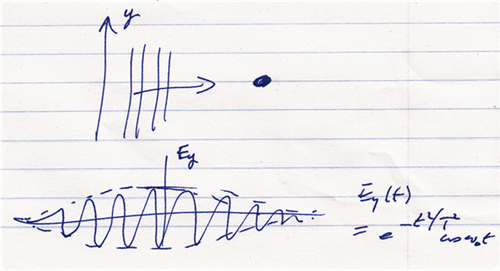 y
E_y
E_y(t)
= e^{-t²/T²} cos ω₀t